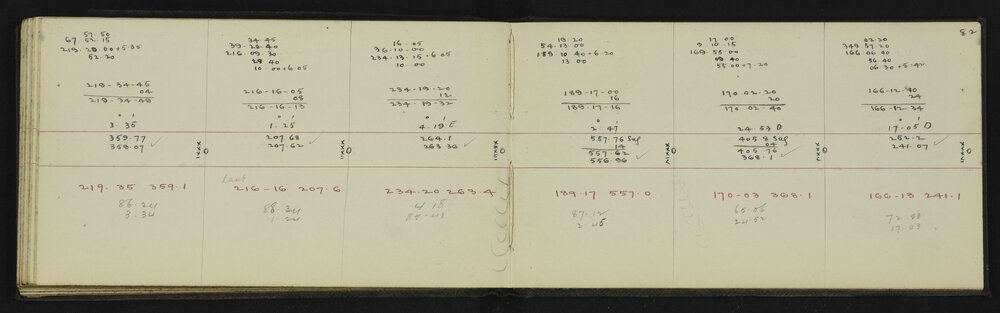 82
57.50
67 52.15
219.28.00+5.35
52.20
219-34-45
04
219-34-49
3.35
359.77
359.07
219.35 359.1
86.24
3.34
34.45
39.28.40
216.09.30
28 40
10 00+6.05
216-16-05
08
216-16-13
1.25
207.68
207.62
last
216-16 207.6
88.34
1.24
16.05
36-10-00
234-13.15+6.05
10 00
234-19-20
12
234-19-32
4.19 E
264.1
263.36
234.20 263.4
4 18
85-41
19.20
54.13.00
189.10 40+6.20
13 00
189-17-00
16
189-17-16
2 47
557.76 Sag
14
557.62
556.96
189.17 557.0
87.12
2.45
17 00
9 10.15
169.55 00
09 40
55 00+7.20
170-02-20
20
170 02 40
24.53 D
405.8 Sag
04
405.76
368.1
170-03 368.1
65.06
24 52
02.20
349 57.20
166 06 40
56 40
06 30+5.40
166-12.10
24
166-12 34
17.05 D
252.2
241.07
166-13 241.1
72.53
17.03